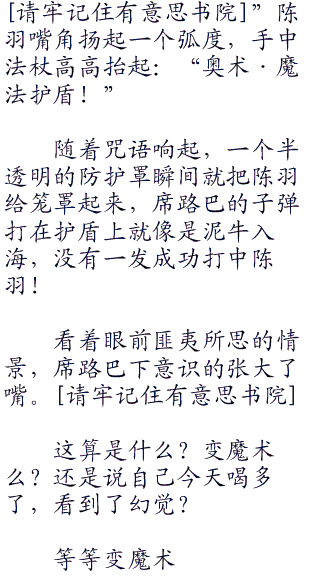 [请牢记住有意思书院]”陈
羽嘴角扬起一个弧度，手中
法杖高高抬起：“奥术·魔
法护盾！”
随着咒语响起，一个半
透明的防护罩瞬间就把陈羽
给笼罩起来，席路巴的子弹
打在护盾上就像是泥牛入
海，没有一发成功打中陈
羽！
看着眼前匪夷所思的情
景，席路巴下意识的张大了
嘴。[请牢记住有意思书院]
这算是什么？变魔术
么？还是说自己今天喝多
了，看到了幻觉？
等等变魔术